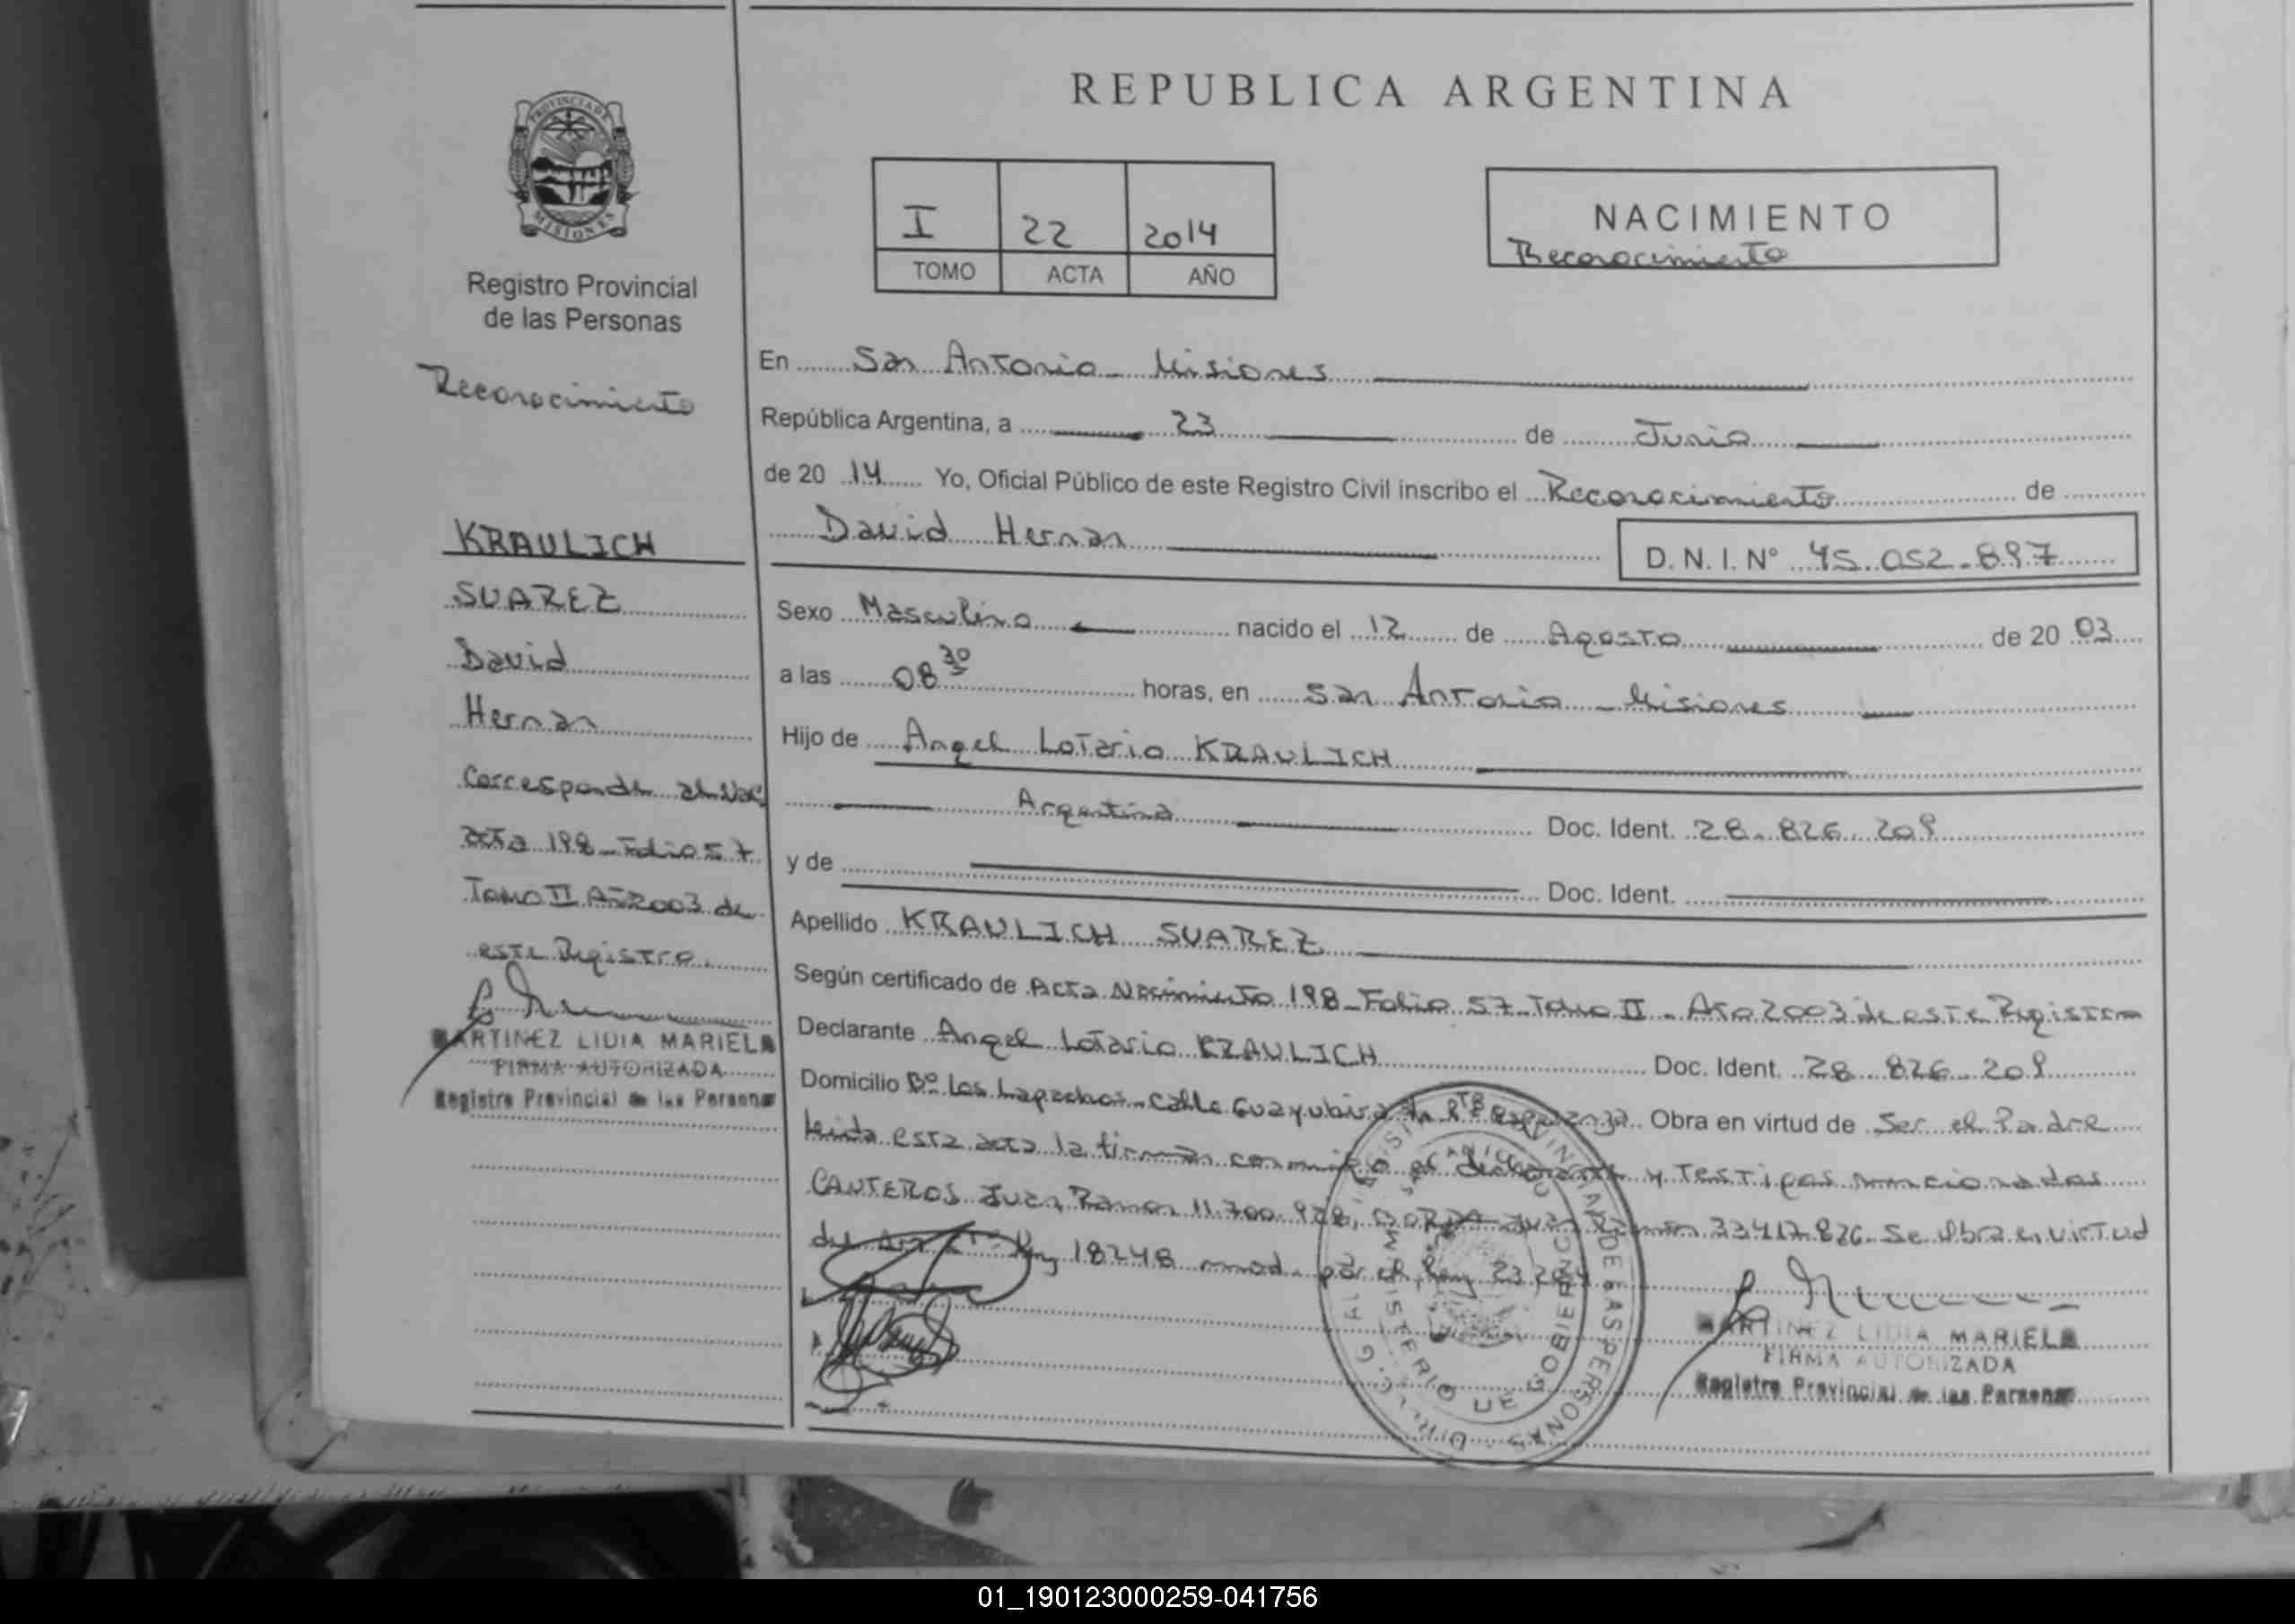 REPUBLICA ARGENTINA
PROVINCIA DE
MISIONES
Registro Provincial
de las Personas
I 22 2014
TOMO ACTA AÑO
NACIMIENTO
Reconocimiento
Reconocimiento
KRAULICH
SUAREZ
David
Hernan
Corresponde al Nac
acta 198 - Folio 57
Tomo II Año 2003 de
este Registro.
MARTINEZ LIDIA MARIELA
FIRMA AUTORIZADA
Registro Provincial de las Personas
En San Antonio - Misiones
República Argentina, a 23 de Junio
de 20 14 Yo, Oficial Público de este Registro Civil inscribo el Reconocimiento de
David Hernan D.N.I. N° 45.052.897
Sexo Masculino nacido el 12 de Agosto de 20 03
a las 08 30 horas, en San Antonio - Misiones
Hijo de Angel Lotario KRAULICH
Argentina Doc. Ident. 28.826.209
y de Doc. Ident.
Apellido KRAULICH SUAREZ
Según certificado de Acta Nacimiento 198 - Folio 57 - Tomo II - Año 2003 de este Registro
Declarante Angel Lotario KRAULICH Doc. Ident. 28.826.209
Domicilio Bº Los Lapachos - calle Guayubira Pto Esperanza. Obra en virtud de Ser el Padre
leida esta acta la firman conmigo el declarante y Testigos mencionados
CANTEROS Juan Ramon 11.700.928, Juan Ramon 33.417.826. Se obra en virtud
del Art Ley 18248 mod. por el Ley 23.264
MARTINEZ LIDIA MARIELA
FIRMA AUTORIZADA
Registro Provincial de las Personas
MINISTERIO DE GOBIERNO
01_190123000259-041756